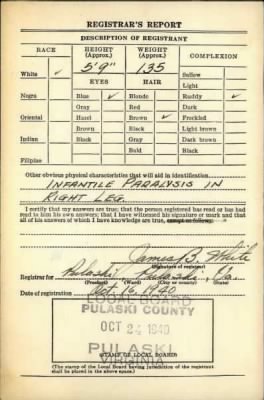 REGISTRAR'S REPORT
DESCRIPTION OF REGISTRANT
RACE HEIGHT (Approx.) WEIGHT (Approx.) COMPLEXION
5' 9" 135 Sallow
White ✓ Light
EYES HAIR Ruddy ✓
Negro Blue ✓ Blonde Dark
Gray Red Freckled
Oriental Hazel Brown ✓ Light brown
Brown Black Dark brown
Indian Black Gray Black
Bald
Filipino
Other obvious physical characteristics that will aid in identification
INFANTILE PARALYSIS IN
RIGHT LEG.
I certify that my answers are true; that the person registered has read or has had
read to him his own answers; that I have witnessed his signature or mark and that
all of his answers of which I have knowledge are true, except as follows:
James B. White
(Signature of registrar)
Registrar for Pulaski Pulaski, Va.
(Precinct) (Ward) (City or county) (State)
Date of registration Oct. 16, 1940
LOCAL BOARD
PULASKI COUNTY
OCT 24 1940
PULASKI
VIRGINIA
(STAMP OF LOCAL BOARD)
(The stamp of the Local Board having jurisdiction of the registrant
shall be placed in the above space.)